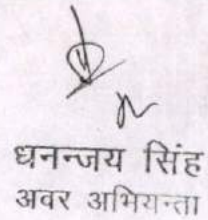 धनन्जय सिंह
अवर अभियन्ता